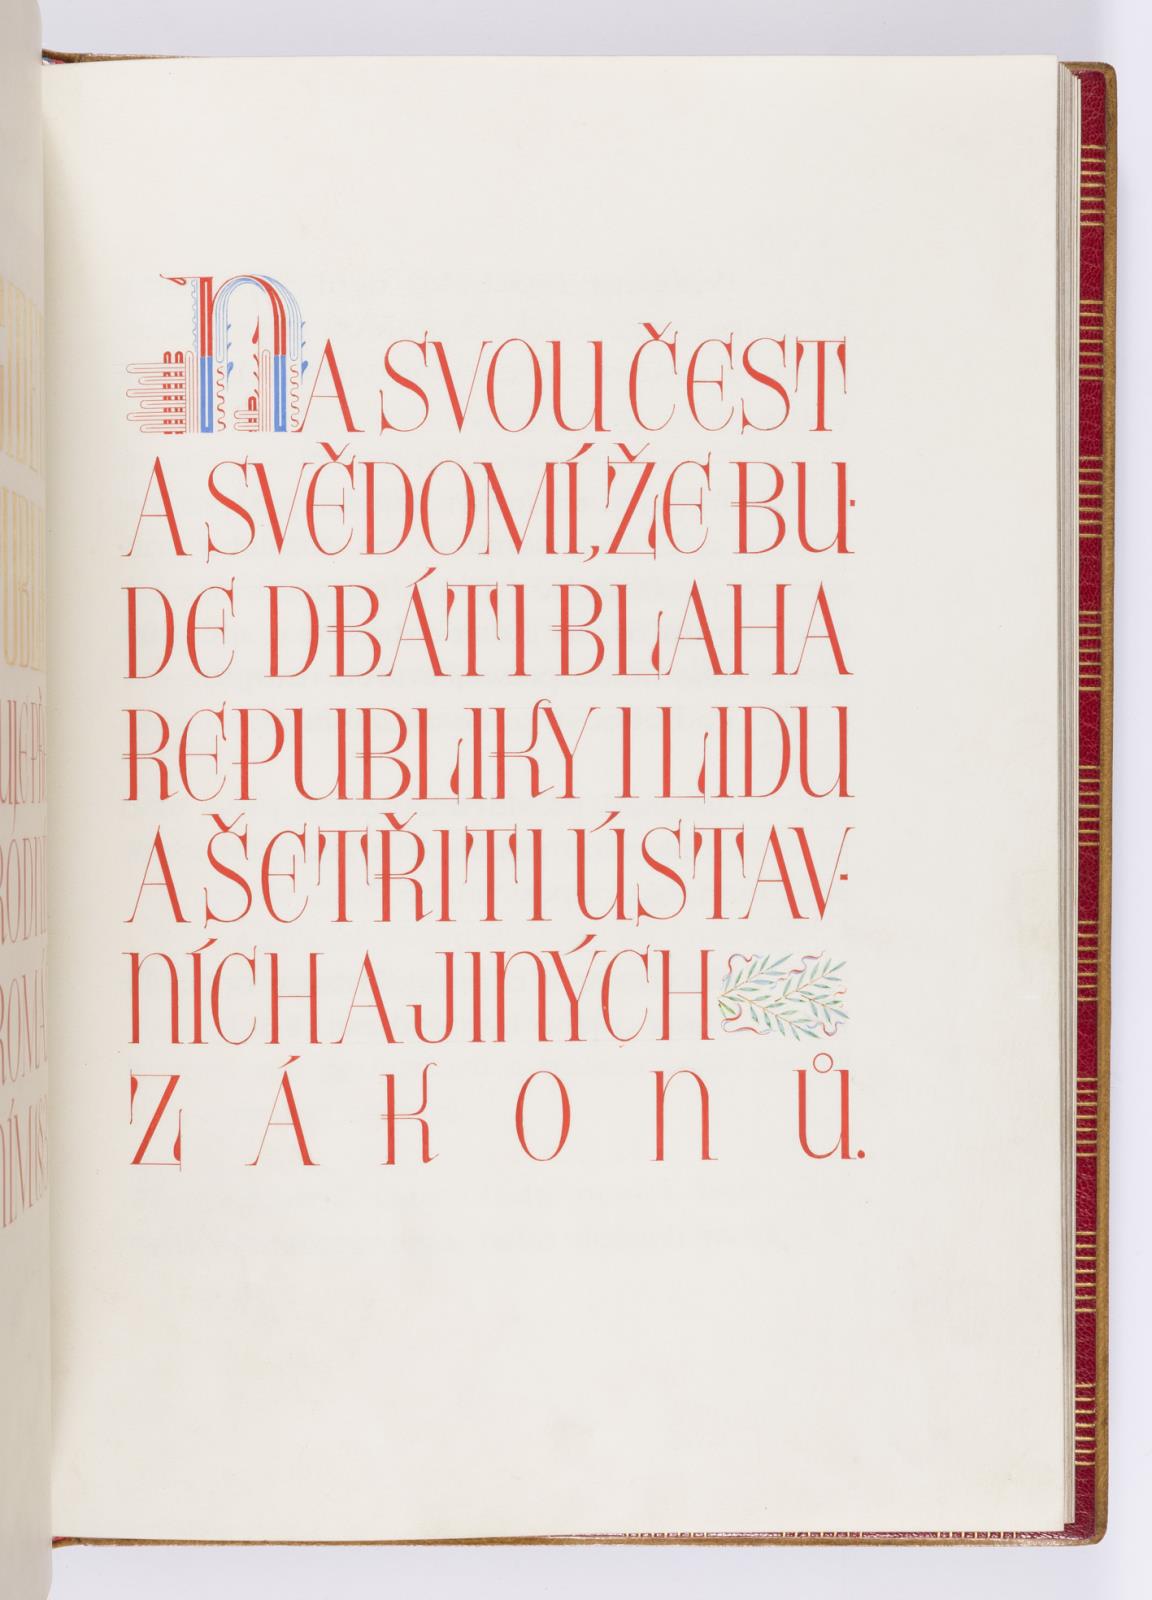 NA SVOU ČEST
A SVĚDOMÍ, ŽE BU-
DE DBÁTI BLAHA
REPUBLIKY I LIDU
A ŠETŘITI ÚSTAV-
NÍCH A JINÝCH
ZÁKONŮ.